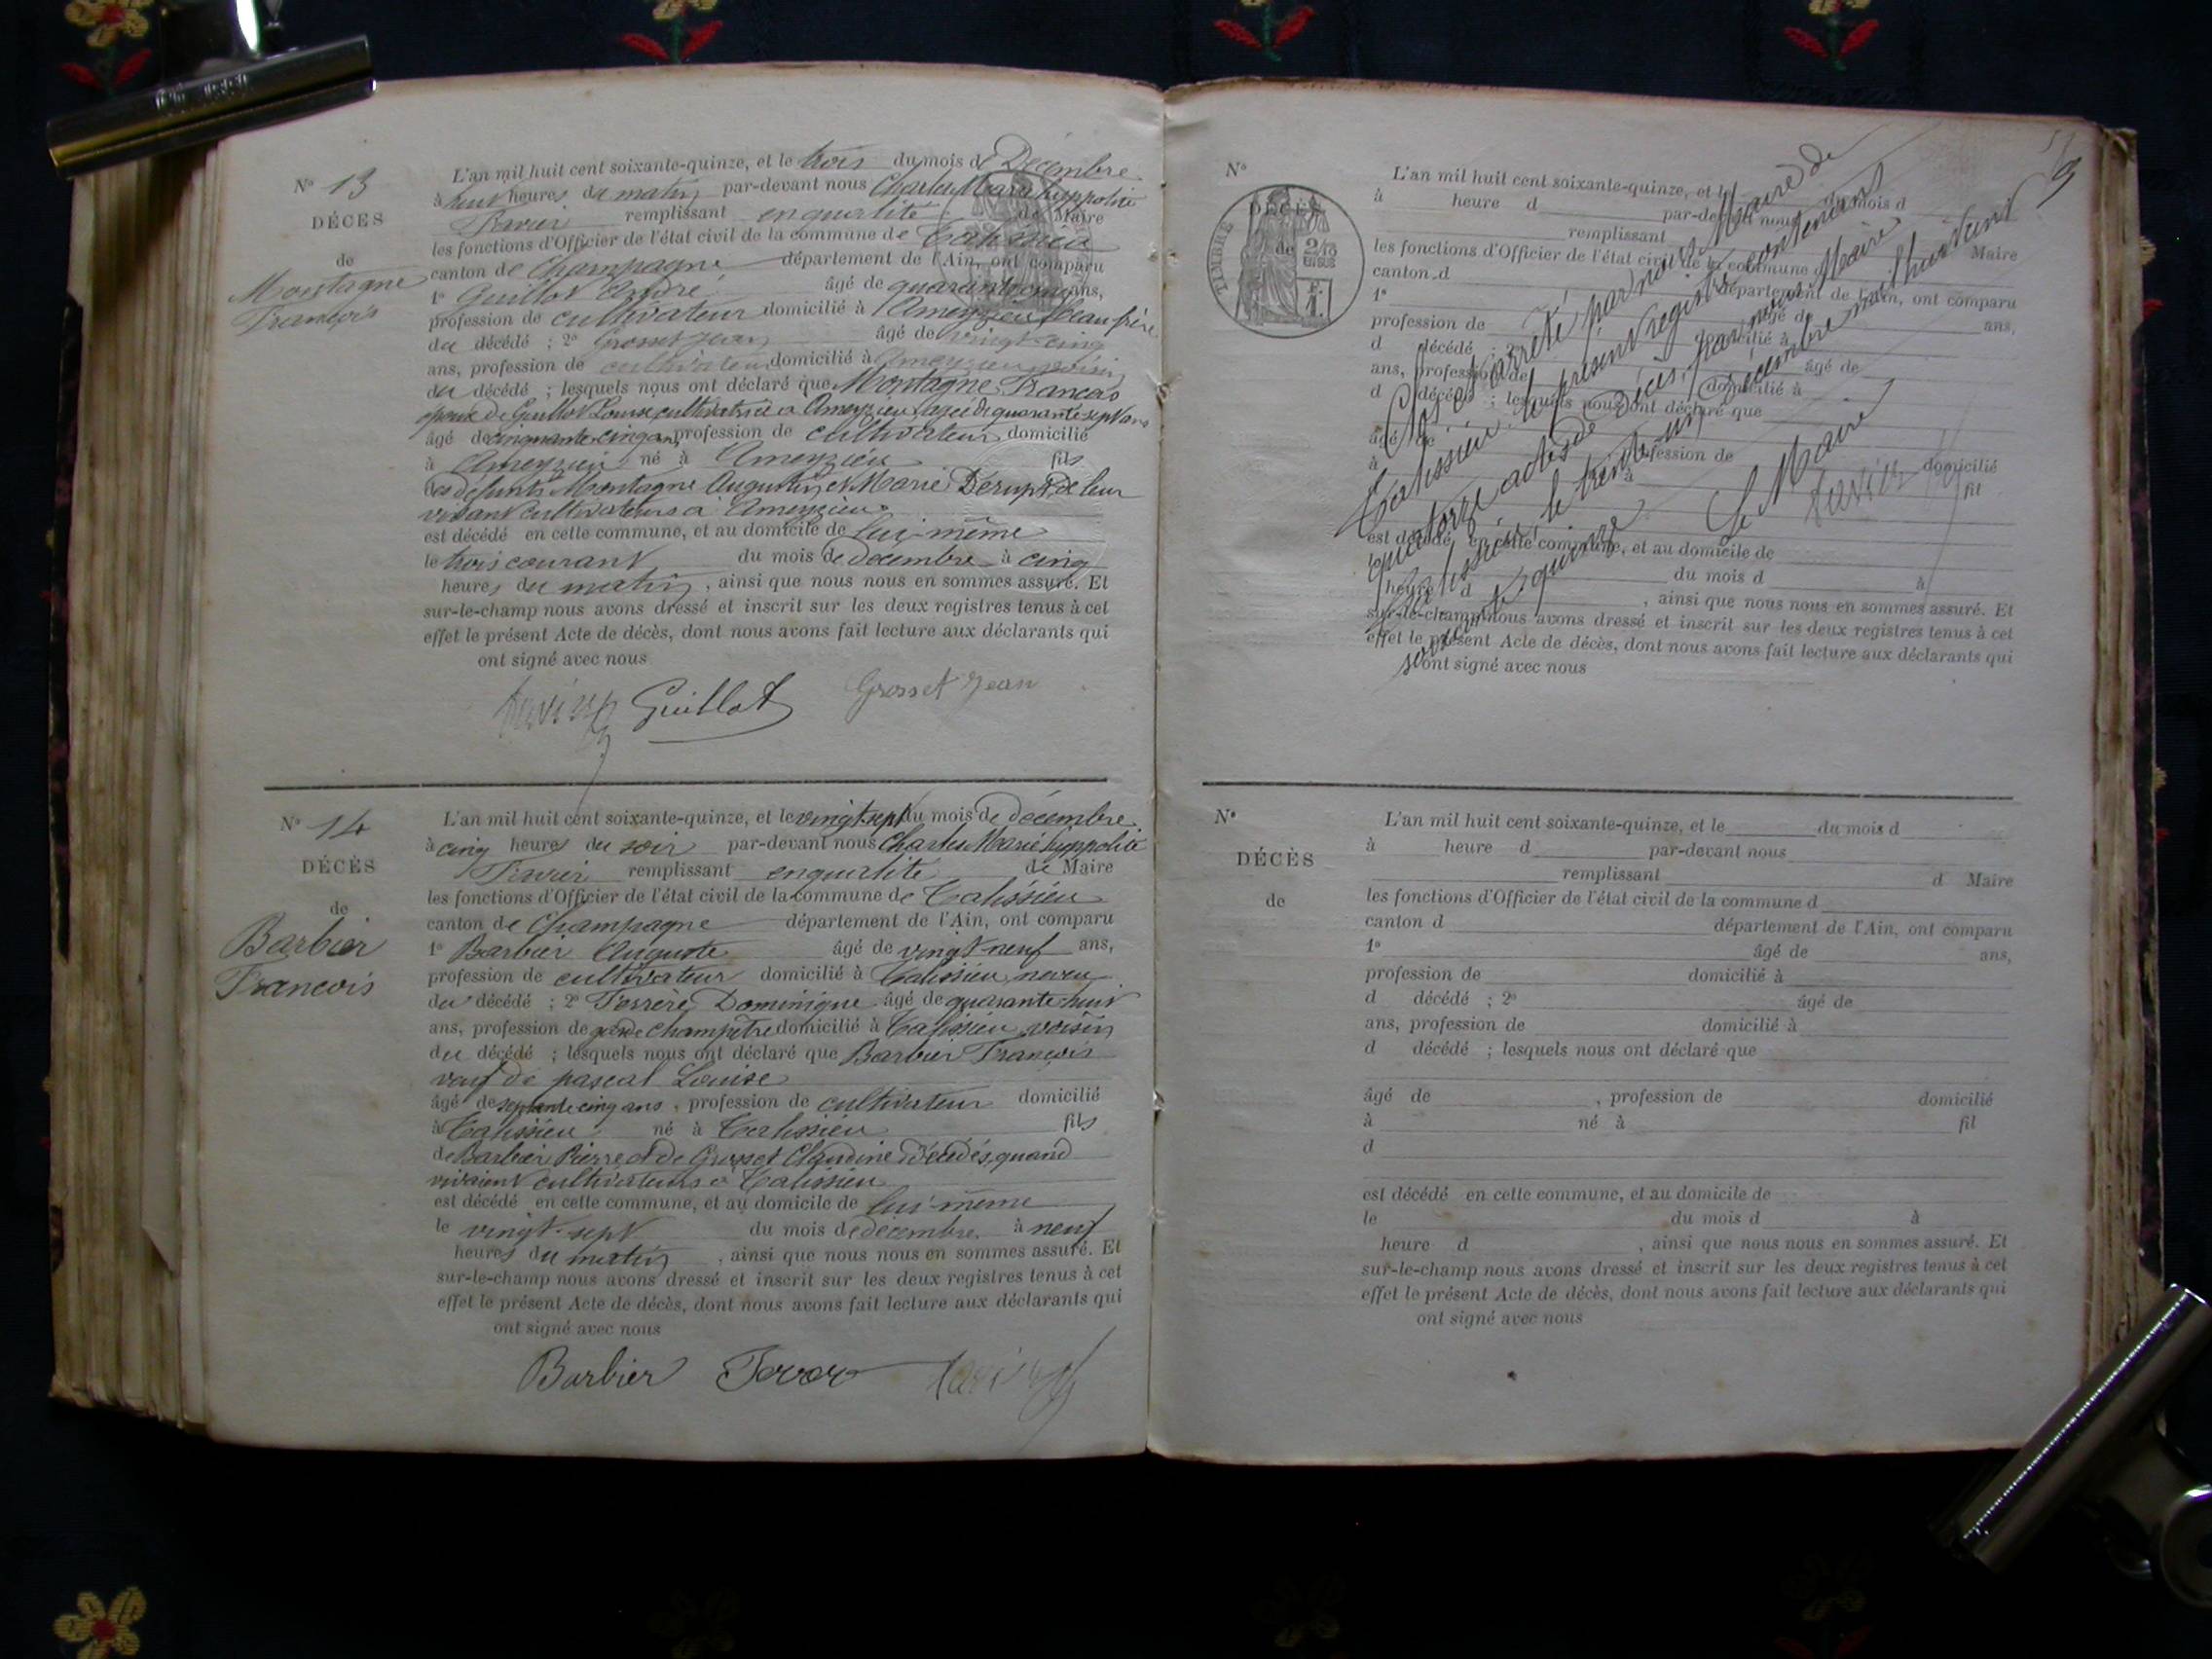 N° 13
DÉCÈS
de
Montagne
Francois
L'an mil huit cent soixante-quinze, et le trois du mois de Décembre
à huit heures du matin par-devant nous Charles Marie hyppolite
remplissant en qualité de Maire
les fonctions d'Officier de l'état civil de la commune de Talissieu
canton de Champagne département de l'Ain, ont comparu
1° Guillot André âgé de ans,
profession de cultivateur domicilié à Ameyzieu beau frère
du décédé ; 2° Grosset Jean âgé de vingt cinq
ans, profession de cultivateur domicilié à Ameyzieu voisin
du décédé ; lesquels nous ont déclaré que Montagne Francois
époux de Guillot Louise cultivatrice a Ameyzieu agée de quarante sept ans
âgé de cinquante cinq ans, profession de cultivateur domicilié
à Ameyzieu né à Ameyzieu fils
des défunts Montagne Augustin et Marie Derupt de leur
vivant cultivateurs a Ameyzieu
est décédé en cette commune, et au domicile de lui-même
le trois courant du mois de decembre à cinq
heures du matin, ainsi que nous nous en sommes assuré. Et
sur-le-champ nous avons dressé et inscrit sur les deux registres tenus à cet
effet le présent Acte de décès, dont nous avons fait lecture aux déclarants qui
ont signé avec nous
Guillot Grosset Jean
N° 14
DÉCÈS
de
Barbier
Francois
L'an mil huit cent soixante-quinze, et le vingt sept du mois de décembre
à cinq heures du soir par-devant nous Charles Marie hyppolite
remplissant en qualité de Maire
les fonctions d'Officier de l'état civil de la commune de Talissieu
canton de Champagne département de l'Ain, ont comparu
1° Barbier Auguste âgé de vingt-neuf ans,
profession de cultivateur domicilié à Talissieu neveu
du décédé ; 2° Dominique âgé de quarante-huit
ans, profession de garde champêtre domicilié à Talissieu voisin
du décédé ; lesquels nous ont déclaré que Barbier Francois
veuf de pascal Louise
âgé de septante cinq ans, profession de cultivateur domicilié
à Talissieu né à Talissieu fils
de Barbier Pierre et de Grosset Claudine décédés, quand
vivaient cultivateurs a Talissieu
est décédé en cette commune, et au domicile de lui-même
le vingt-sept du mois de décembre à neuf
heures du matin, ainsi que nous nous en sommes assuré. Et
sur-le-champ nous avons dressé et inscrit sur les deux registres tenus à cet
effet le présent Acte de décès, dont nous avons fait lecture aux déclarants qui
ont signé avec nous
Barbier
N°
DÉCÈS
de
TIMBRE
2/10
EN SUS
L'an mil huit cent soixante-quinze, et le du mois d
à heure d par-devant nous
remplissant Maire
les fonctions d'Officier de l'état civil de la commune d
canton d département de l'Ain, ont comparu
1° âgé de ans,
profession de domicilié à
d décédé ; 2° âgé de
ans, profession de domicilié à
d décédé ; lesquels nous ont déclaré que
âgé de profession de domicilié
à né à fil
est décédé en cette commune, et au domicile de
du mois d à
heure d , ainsi que nous nous en sommes assuré. Et
sur-le-champ nous avons dressé et inscrit sur les deux registres tenus à cet
effet le présent Acte de décès, dont nous avons fait lecture aux déclarants qui
ont signé avec nous
Clos et arrêté par nous Maire de
Talissieu le présent registre contenant
quatorze actes de Décès, par nous Maire
a Talissieu, le trente un Décembre mil huit cent
soixante quinze
Le Maire
N°
DÉCÈS
de
L'an mil huit cent soixante-quinze, et le du mois d
à heure d par-devant nous
remplissant d Maire
les fonctions d'Officier de l'état civil de la commune d
canton d département de l'Ain, ont comparu
1° âgé de ans,
profession de domicilié à
d décédé ; 2° âgé de
ans, profession de domicilié à
d décédé ; lesquels nous ont déclaré que
âgé de , profession de domicilié
à né à fil
d
est décédé en cette commune, et au domicile de
le du mois d à
heure d , ainsi que nous nous en sommes assuré. Et
sur-le-champ nous avons dressé et inscrit sur les deux registres tenus à cet
effet le présent Acte de décès, dont nous avons fait lecture aux déclarants qui
ont signé avec nous